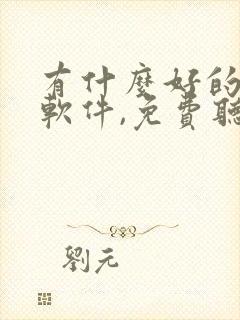 有什麼好的
軟件,免費聽
劉元